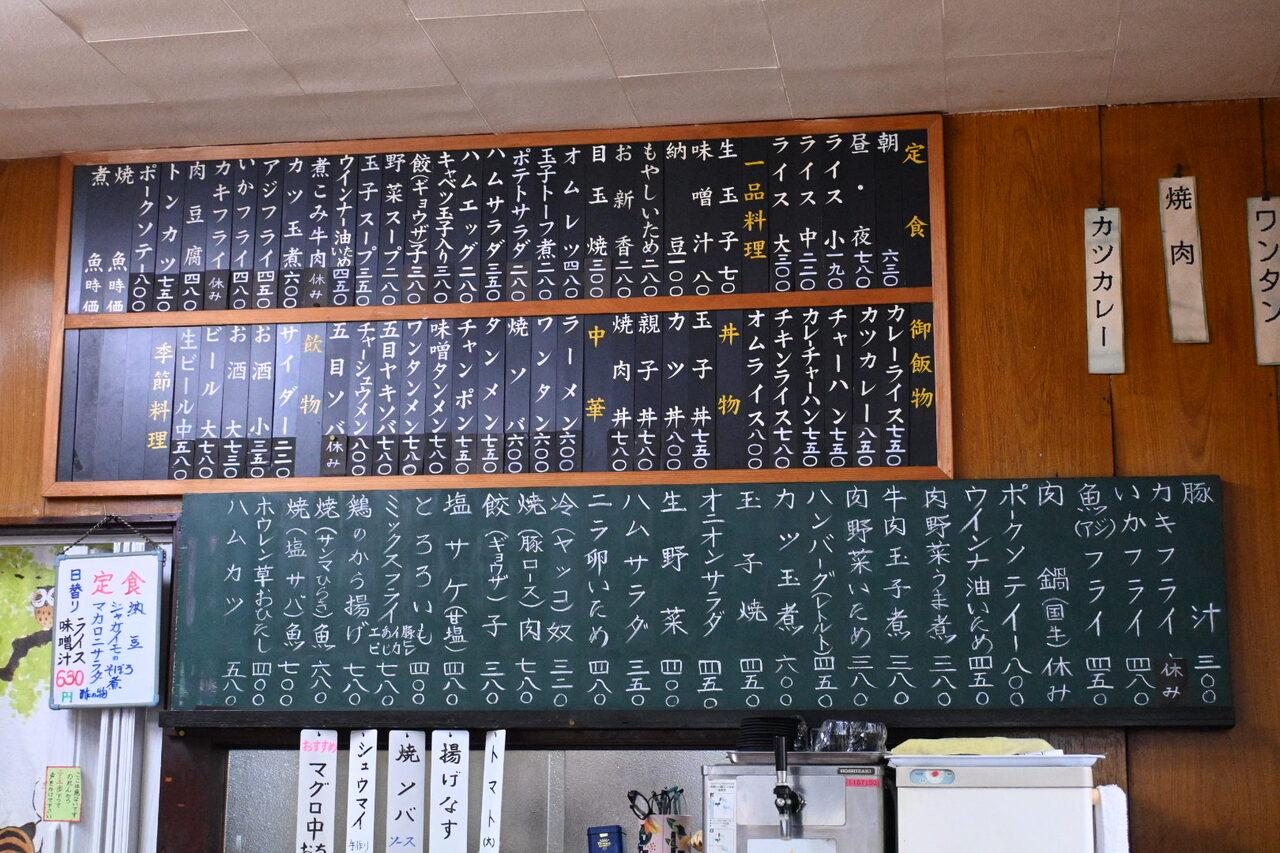 定食
朝 六三〇
昼・夜 七八〇
ライス 小 一九〇
ライス 中 二二〇
ライス 大 三〇〇
一品料理
生玉子 七〇
味噌汁 八〇
納豆 一〇〇
もやしいため 二八〇
お新香 二八〇
目玉焼 三〇〇
オムレツ 四八〇
玉子トーフ煮 二八〇
ポテトサラダ 二八〇
ハムサラダ 三五〇
ハムエッグ 二八〇
キャベツ玉子入り 三八〇
餃(ギョウザ)子 三八〇
野菜スープ 二八〇
玉子スープ 三五〇
ウインナー油いため 四五〇
煮こみ牛肉 休み
カツ玉煮 六〇〇
アジフライ 四五〇
いかフライ 四八〇
カキフライ 休み
肉豆腐 四八〇
トンカツ 七五〇
ポークソテー 八〇〇
焼魚 時価
煮魚 時価
御飯物
カレーライス 七五〇
カツカレー 八五〇
チャーハン 七五〇
カレーチャーハン 七五〇
チキンライス 七八〇
オムライス 八〇〇
丼物
玉子丼 七五〇
カツ丼 八〇〇
親子丼 七八〇
焼肉丼 七八〇
中華
ラーメン 六〇〇
ワンタン 六〇〇
焼ソバ 六〇〇
タンメン 七五〇
チャンポン 七五〇
味噌タンメン 七八〇
ワンタンメン 七八〇
五目ヤキソバ 七八〇
チャーシュウメン 八〇〇
五目ソバ 休み
飲物
サイダー 二二〇
お酒 小 三五〇
お酒 大 七三〇
ビール 大 七八〇
生ビール 中 五八〇
季節料理
豚汁 三〇〇
カキフライ 休み
いかフライ 四八〇
魚(アジ)フライ 四五〇
肉鍋(国生) 休み
ポークソテイー 八〇〇
ウインナ油いため 四五〇
肉野菜うま煮 三八〇
牛肉玉子煮 三八〇
肉野菜いため 三八〇
ハンバーグ(レトルト) 四五〇
カツ玉煮 六〇〇
玉子焼 四五〇
オニオンサラダ 四五〇
生野菜 四〇〇
ハムサラダ 三五〇
ニラ卵いため 四八〇
冷(ヤッコ)奴 三二〇
焼(豚ロース)肉 七八〇
餃(ギョウザ)子 三八〇
塩サケ(甘塩) 四八〇
とろろいも 四〇〇
ミックスフライ 七八〇
鶏のから揚げ 七八〇
焼(サンマひらき)魚 六八〇
焼(塩サバ)魚 七〇〇
ホウレン草おひたし 四〇〇
ハムカツ 五八〇
ワンタン
焼肉
カツカレー
日替り定食
納豆
ジャガイモのそぼろ煮
マカロニサラダ
酢の物
ライス
味噌汁
630円
おすすめ
マグロ中お
シュウマイ
手作り
焼ソバ
ソース
揚げなす
トマト(大)
HOSHIZAKI